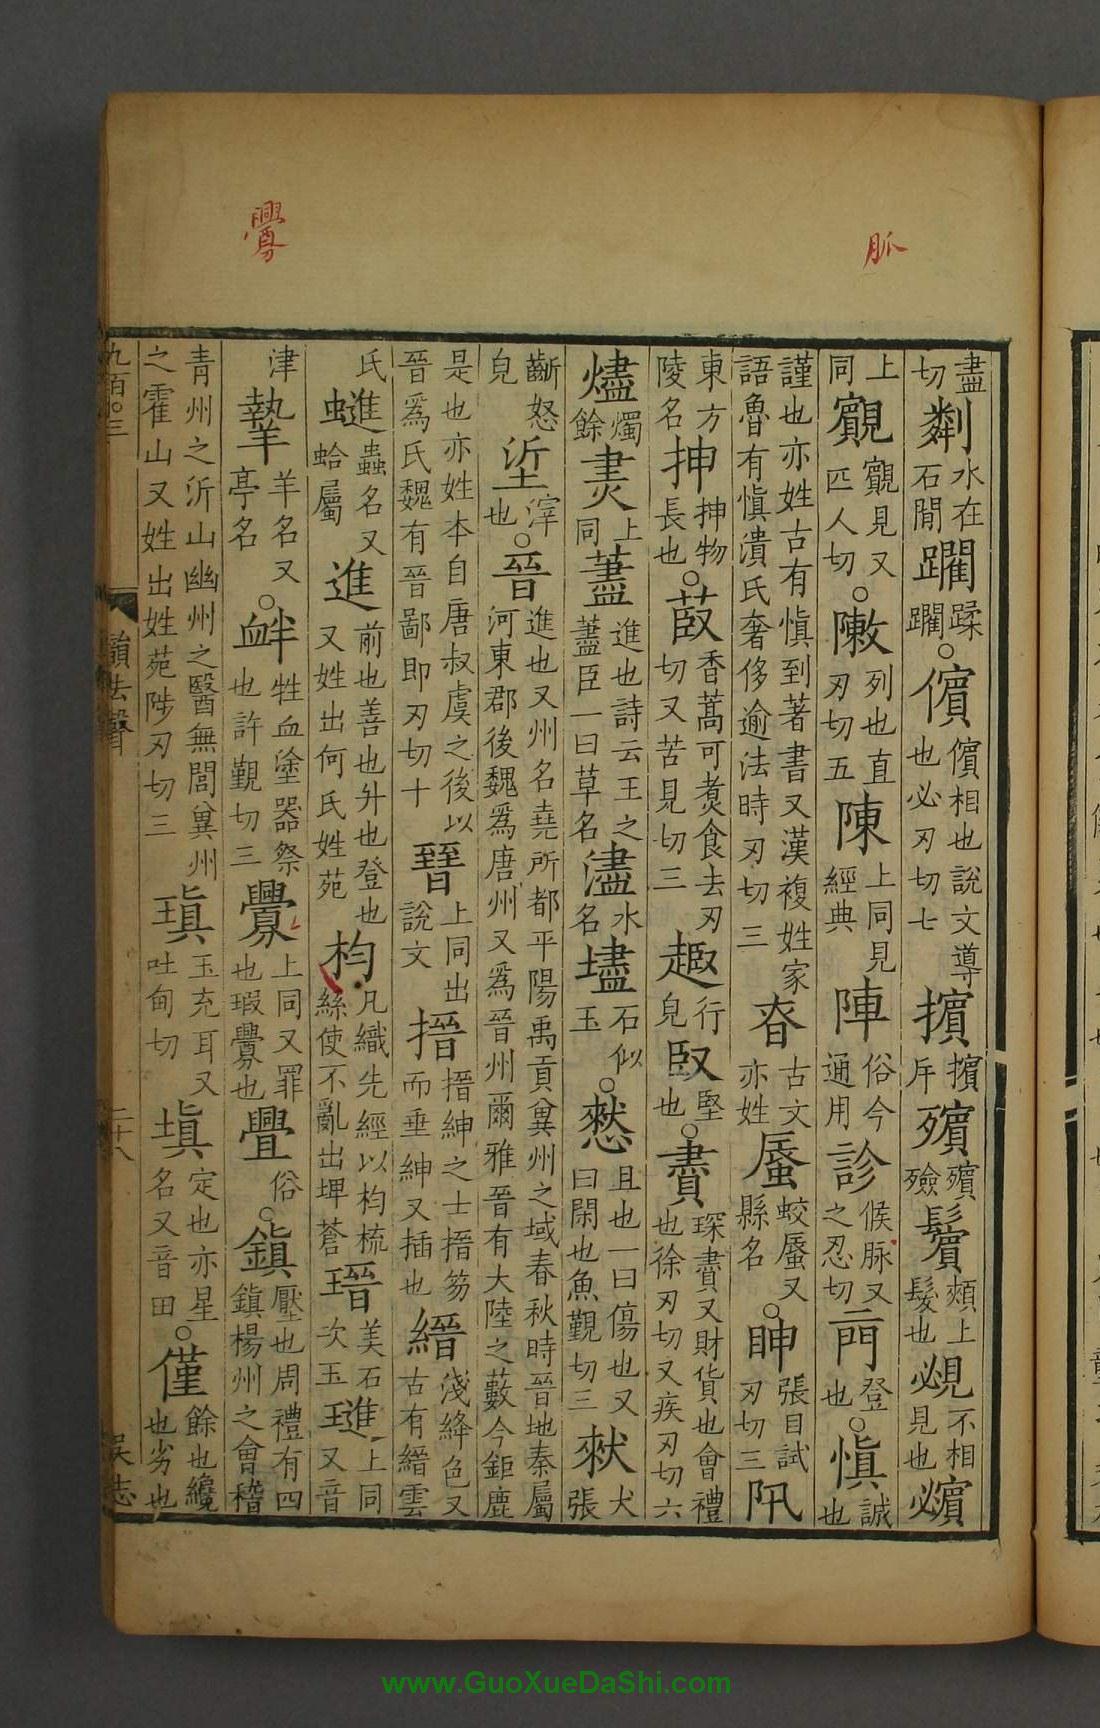 脈
釁
盡切粼水在石閒躙蹂躙○儐儐相也說文導也必刃切七擯擯斥殯殯殮鬢頰上髮也覕不相見也
上同覿覿見又匹人切○敶列也直刃切五陳上同見經典陣俗今通用診候脉又之忍切閵登也○愼誠也
謹也亦姓古有愼到著書又漢複姓家語魯有愼潰氏奢侈逾法時刃切三昚古文亦姓蜃蛟蜃又縣名○眒張目試刃切三阠
東方陵名抻抻物長也○菣香蒿可煑食去刃切又苦見切三趣行皃臤堅也○賮琛賮又財貨也會禮也徐刃切又疾刃切六
燼燭餘㶳上同藎進也詩云王之藎臣一曰草名濜水名璶石似玉○憖且也一曰傷也又曰閑也魚覲切三猌犬張
齗怒皃垽滓也○晉進也又州名堯所都平陽禹貢兾州之域春秋時晉地秦屬河東郡後魏爲唐州又爲晉州爾雅晉有大陸之藪今鉅鹿
是也亦姓本自唐叔虞之後以晉爲氏魏有晉鄙即刃切十㬜上同出說文搢搢紳之士搢笏而垂紳又插也縉淺絳色又古有縉雲
氏蜂蟲名又蛤屬進前也善也升也登也又姓出何氏姓苑枃凡織先經以枃梳絲使不亂出埤蒼瑨美石次玉璡上同又音
津㹂羊名又亭名○衅牲血塗器祭也許覲切三釁上同又罪也瑕釁也舋俗○鎭壓也周禮有四鎭楊州之會稽
青州之沂山幽州之醫無閭兾州之霍山又姓出姓苑陟刃切三瑱玉充耳又吐甸切塡定也亦星名又音田○僅餘也纔也劣也
九百○三
韻去聲
二十八
吴志
www.GuoXueDaShi.com